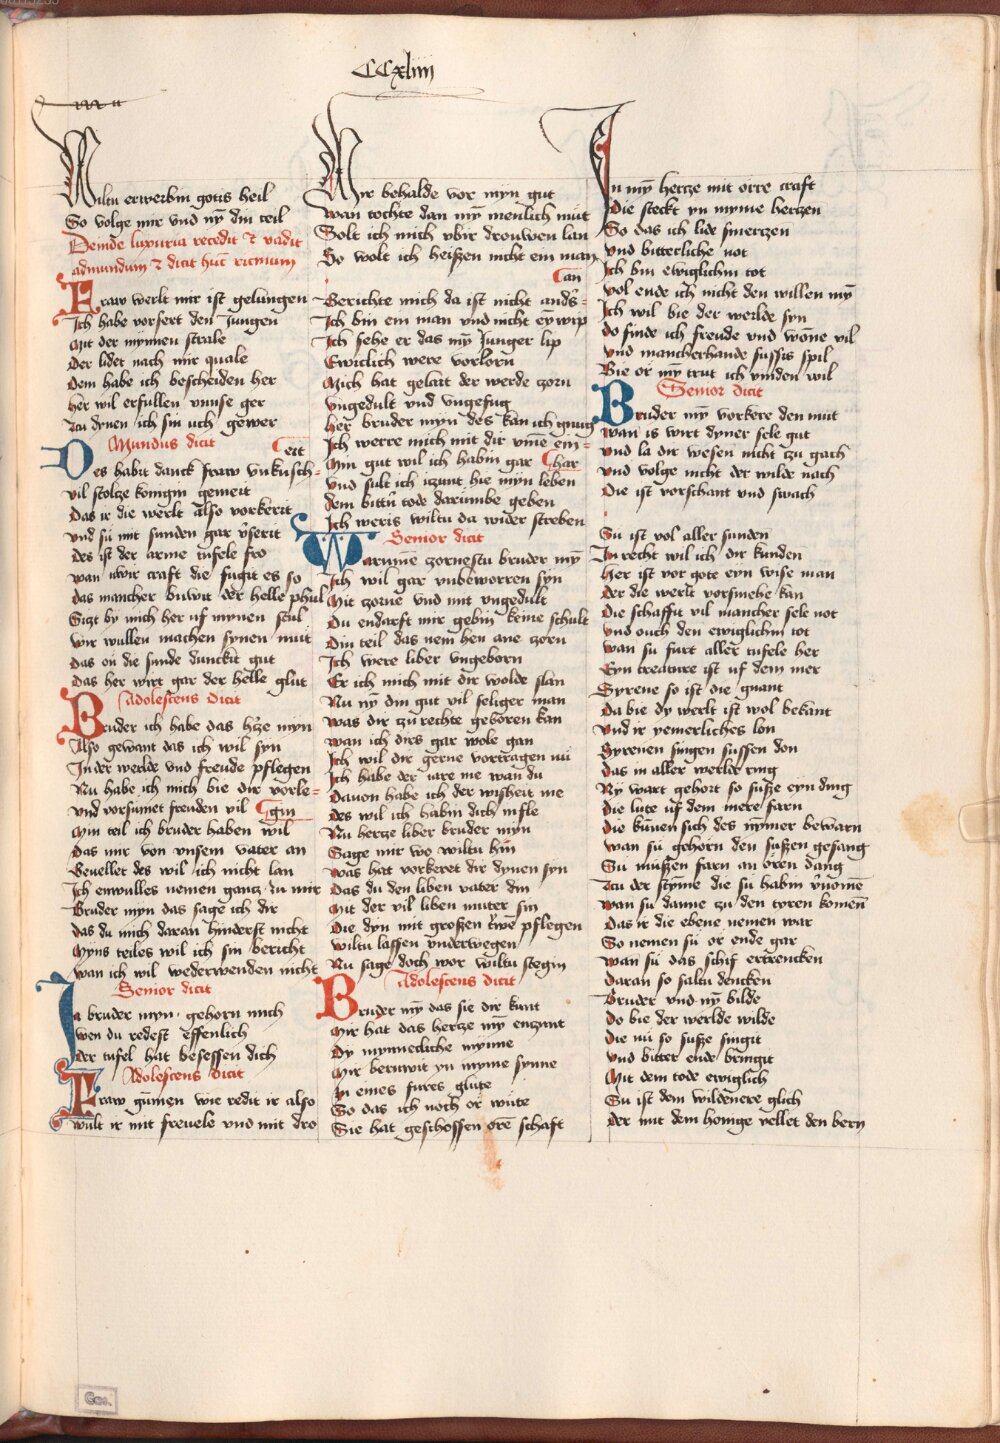 CCxliiii
Wiltu erwerbin gotis heil
So volge mir vnd ny̅ din teil
Deinde luxuria recedit ⁊ vadit
admundum ⁊ dicit hu̅c ricmum
Fraw werlt mir ist gelungen
Ich habe vorsert den Jungen
Mit der mynnen strale
Der lidet nach mir quale
Dem habe ich bescheiden her
her wil erfullen vnnse ger
Zu dynen ich sin uch gewer
Mundus dicit
Des habit danck fraw vnkusch=
eit
vil stolze konigin gemeit
Das ir die werlt also vorkerit
vnd su mit sunden gar v̅serit
des ist der arme tufele fro
wan uwir craft die fugit es so
das mancher buwit der helle phul
Sizt by mich her uf mynen stul
wir wullen machen synen mut
das on die sunde dunckit gut
das her wirt gar der helle glut
Adolescens dicit
Bruder ich habe das h'ze myn
Also gewant das ich wil syn
In der werlde vnd freude pflegen
Nu habe ich mich bie dir vorle=
gin
vnd vorsumet freuden vil
Myn teil ich bruder haben wil
das mir von vnsem vater an
Gevellet des wil ich nicht lan
Ich enwulles nemen gancz zu mir
Bruder myn das sage ich dir
das du mich daran hinderst nicht
Myns teiles wil ich sin bericht
wan ich wil wederwenden nicht
Senior dicit
Ja bruder myn gehorn mich
wen du redest effenlich
der tufel hat besessen dich
Adolescens dicit
Fraw gu̅men wie redit ir also
wult ir mit frevele vnd mit dro
Mir behalde vor myn gut
wan tochte dan my̅ menlich mut
Solt ich mich vbir drouwen lan
So wolt ich heiszen nicht ein man
an
Berichte mich da ist nicht and's=
Ich bin ein man vnd nicht ey̅ wip
Ich sehe er das my̅ Junger lip
Ewiclich were vorlorn
Mich hat gelart der werde zorn
vngedult vnd vngefug
her bruder myn des kan ich gnug
Ich werre mich mit dir vm̅e ein=
har
Myn gut wil ich habin gar
vnd sult ich izunt hie myn leben
dem bittir̅ tode darumbe geben
Ich weris wiltu da wider streben
Senior dicit
Warum̅e zornestu bruder my̅
Ich wil gar vnbeworren syn
Mit zorne vnd mit vngedult
Du endarft mir gebin keine schult
Din teil das nem hen ane zorn
Ich were liber vngeborn
Er ich mich mit dir wolde slan
Nu ny̅ din gut vil seliger man
was dir zu rechte geboren kan
wan ich dirs gar wole gan
Ich wil dir gerne vortragen nu
Ich habe der iare me wan du
Davon habe ich der wisheit me
des wil ich habin dich infle
Nu hertze liber bruder myn
Sage mir wo wiltu hin
was hat vorkeret dir dynen syn
Das du den liben vater din
Mit der vil liben muter sin
Die dyn mit groszen tr̅we pflegen
wiltu lassen vnderwegen
Nu sage doch wor wiltu stegin
Adolescens dicit
Bruder my̅ das sie dir kunt
Mir hat das hertze my̅ enzunt
Dy mynnecliche mynne
Mir bernwit yn myme synne
In eines fures glute
So das ich noch or wute
Sie hat geschossen ore̅ schaft
In my̅ hertze mit orre craft
Die steckt yn myme hertzen
So das ich lide smerzen
vnd bitterliche not
Ich bin ewiglichin tot
vol ende ich nicht den willen my̅
Ich wil bie der werlde syn
do finde ich freude vnd wo̅ne vil
vnd mancherhande suszis spil
Bie or my̅ trut ich vinden wil
Senior dicit
Bruder my̅ vorkere den mut
wan is wirt dyner sele gut
vnd la dir wesen nicht zu gach
vnd volge nicht der wilde nach
Die ist vorschant vnd swach
Su ist vol aller sunden
In recht wil ich dir kunden
her ist vor gote eyn wise man
der die werlt vorsmehe kan
Die schaffit vil mancher sele not
vnd ouch den ewiglichin tot
wan su furt aller tufele her
Eyn creature ist uf dem mer
Syrene so ist die gnant
Da bie dy werlt ist wol bekant
vnd ir yemerliches lon
Syrenen singen sussen don
das in aller werlde ring
Ny wart gehort so susze eyn ding
Die lute uf dem mere farn
Die ku̅nen sich des ny̅mer bewarn
wan su gehorn den suszen gesang
Su muszen farn an oren dang
Zu der sty̅me die su habin v̅nome̅
wan su danne zu den toren komen̅
Das ir die ebene nemen war
So nemen su or ende gar
wan su das schif ertrencken
Daran so saltu dencken
Bruder vnd ny̅ bilde
Do bie der werlde wilde
Die nu so susze singit
vnd bitter ende bringit
Mit dem tode ewiglich
Su ist dem wildenere glich
der mit dem honige vellet den bern